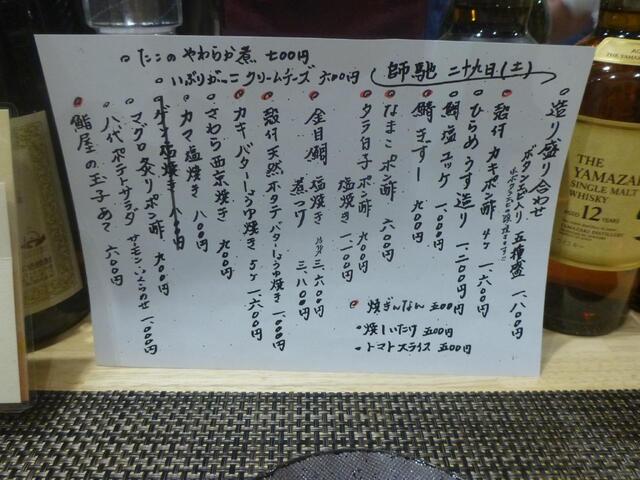 師馳 二十九日(土)
造り盛り合わせ
ボタンエビ入り 五種盛 一、八〇〇円
殻付 カキポン酢 4ヶ 一、六〇〇円
ひらめ うす造り 一、二〇〇円
鯛塩ユッケ 一、〇〇〇円
鯖きずし 九〇〇円
なまこ ポン酢 六〇〇円
タラ白子 ポン酢 九〇〇円
塩焼き 一、一〇〇円
金目鯛 塩焼き 三、六〇〇円
煮つけ 三、八〇〇円
殻付 天然ホタテ バターしょうゆ焼き 一、〇〇〇円
カキ バターしょうゆ焼き 5ヶ 一、六〇〇円
さわら 西京焼き 九〇〇円
カマ塩焼き 八〇〇円
マグロ 炙りポン酢 九〇〇円
八代ポテトサラダ サーモンいくらのせ 一、〇〇〇円
鮨屋の玉子あて 六〇〇円
たこのやわらか煮 七〇〇円
いぶりがっこクリームチーズ 六〇〇円
焼ぎんなん 五〇〇円
焼しいたけ 五〇〇円
トマトスライス 五〇〇円
THE
YAMAZAKI
SINGLE MALT
WHISKY
AGED 12 YEARS